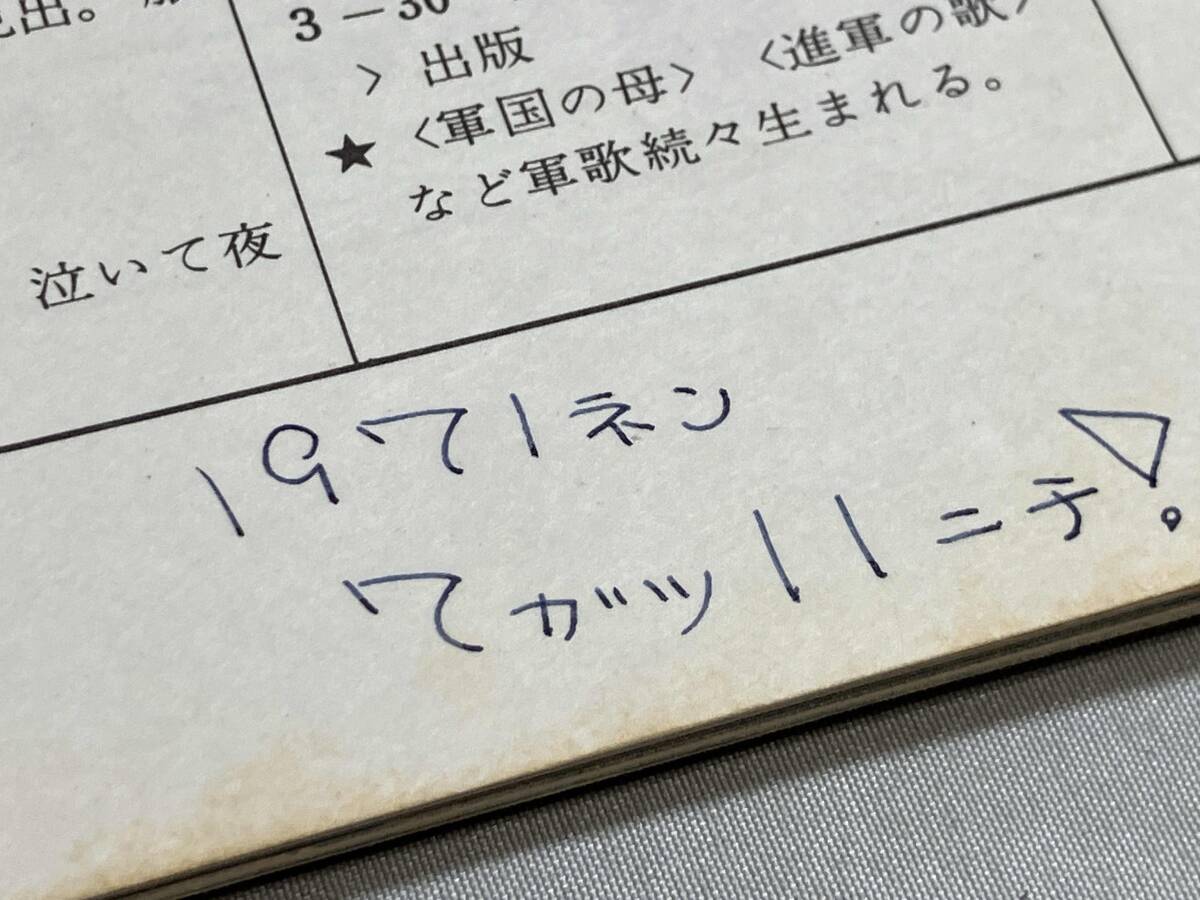 泣いて夜
3－30
〉出版
★〈軍国の母〉〈進軍の歌〉
など軍歌続々生まれる。
1971ネン
7ガツ11ニチ!